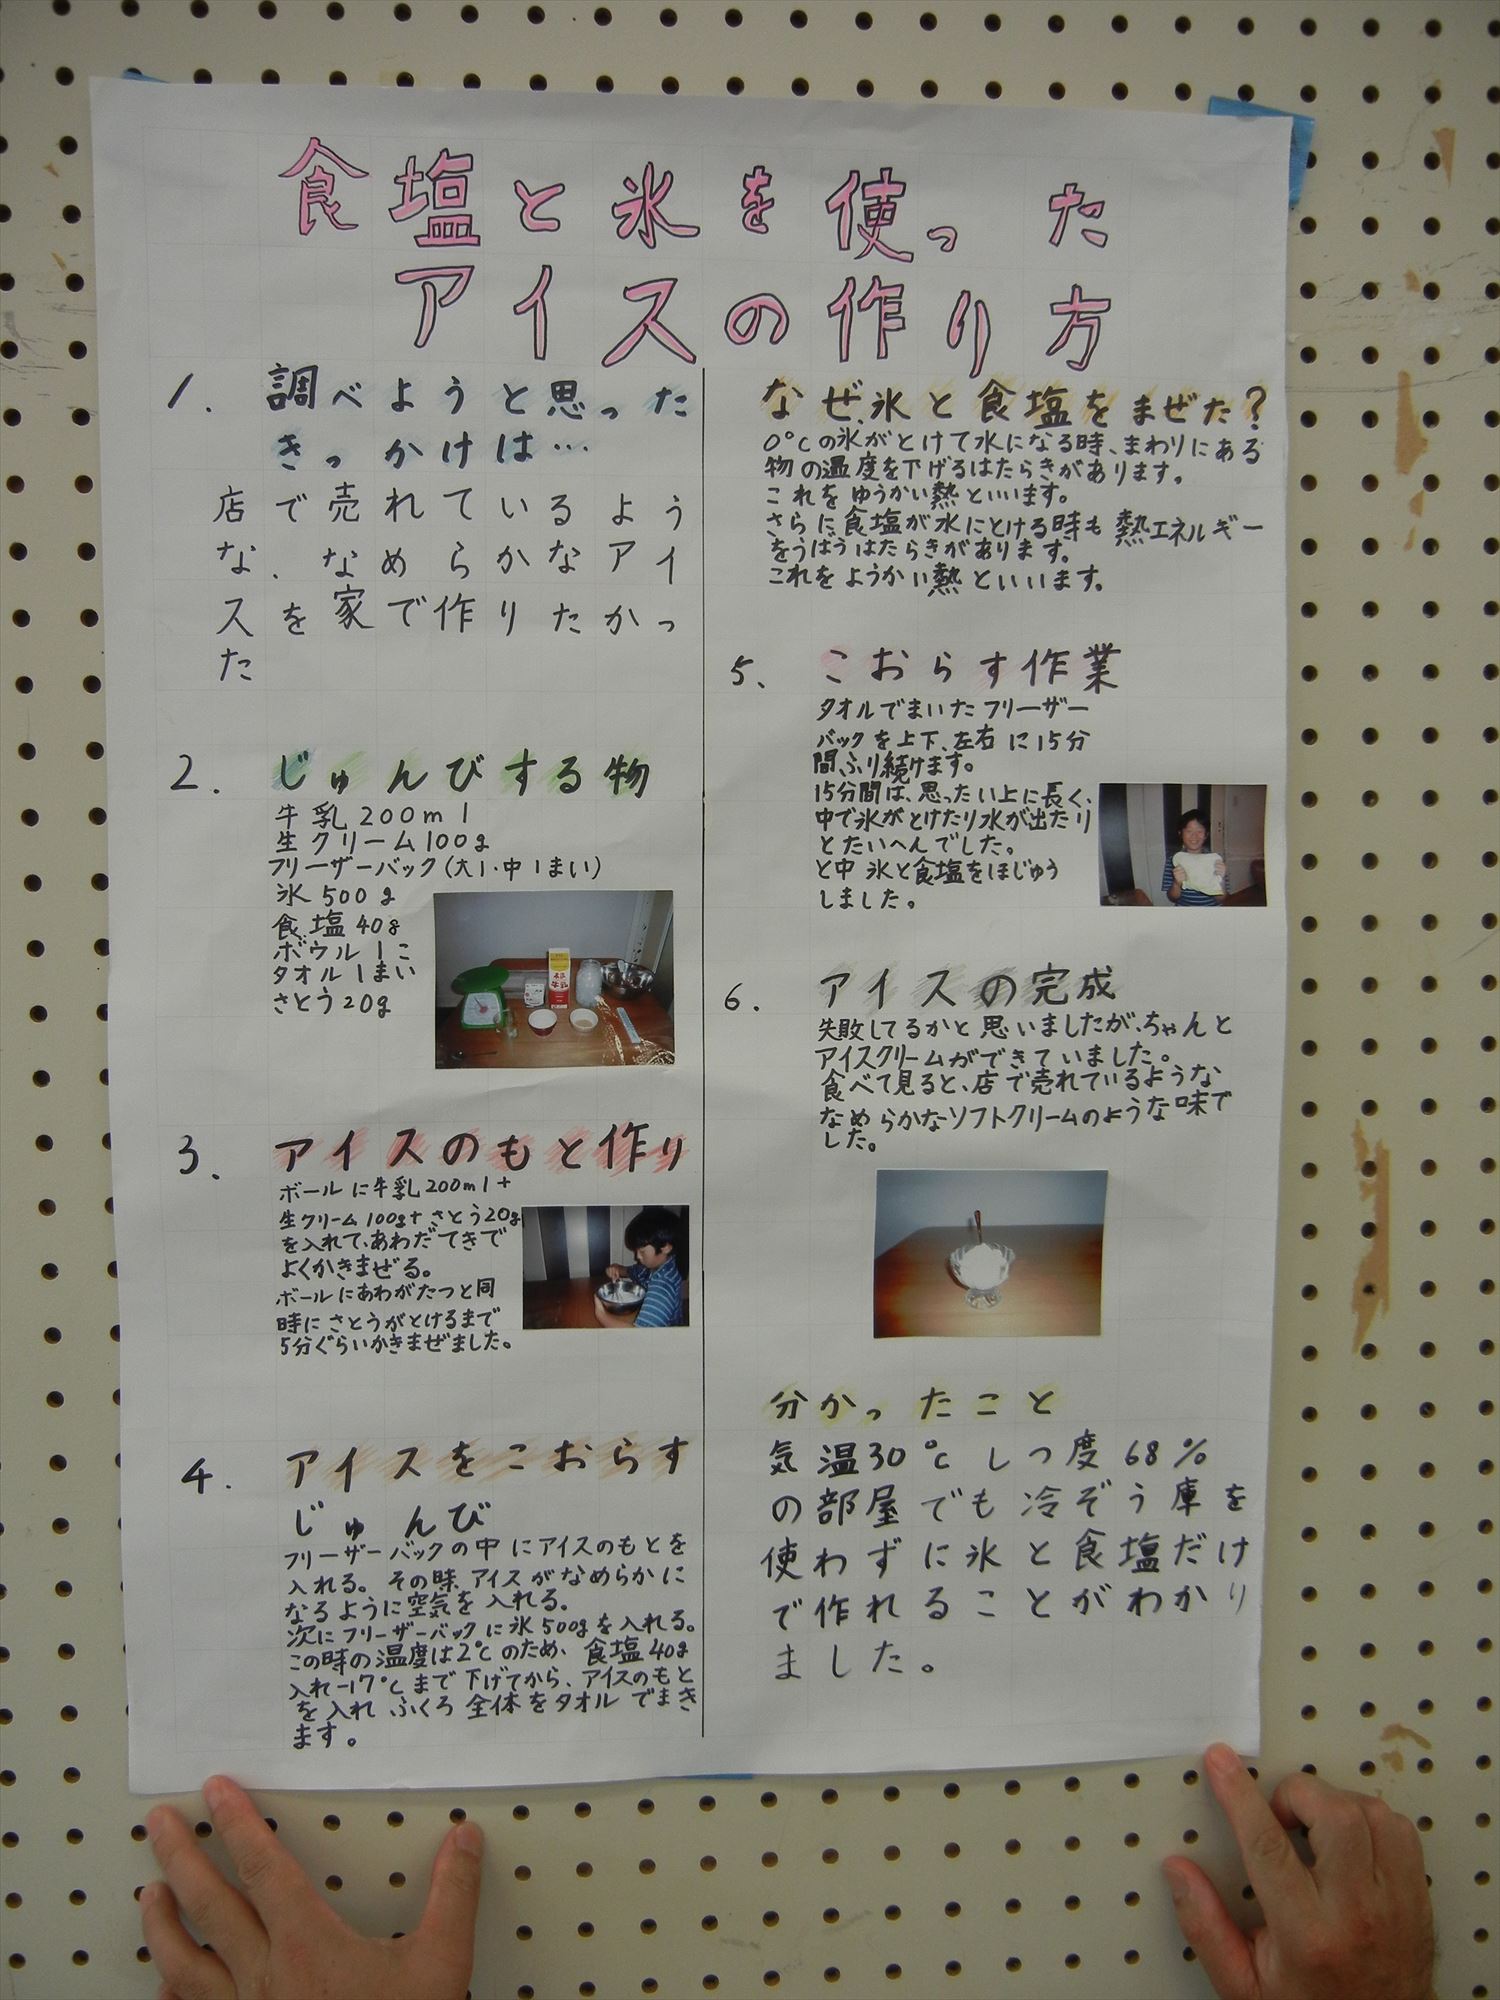 食塩と氷を使った
アイスの作り方
1. 調べようと思った
きっかけは…
店で売れているよう
な、なめらかなアイ
スを家で作りたかっ
た
2. じゅんびする物
牛乳200ml
生クリーム100g
フリーザーバック(大1・中1まい)
氷500g
食塩40g
ボウル1こ
タオル1まい
さとう20g
3. アイスのもと作り
ボールに牛乳200ml+
生クリーム100g+さとう20g
を入れて、あわだてきで
よくかきまぜる。
ボールにあわがたつと同
時にさとうがとけるまで
5分ぐらいかきまぜました。
4. アイスをこおらす
じゅんび
フリーザーバックの中にアイスのもとを
入れる。その時、アイスがなめらかに
なるように空気を入れる。
次にフリーザーバックに氷500gを入れる。
この時の温度は2℃のため、食塩40g
入れ-17℃まで下げてから、アイスのもと
を入れふくろ全体をタオルでまき
ます。
なぜ、氷と食塩をまぜた?
0℃の氷がとけて水になる時、まわりにある
物の温度を下げるはたらきがあります。
これをゆうかい熱といいます。
さらに、食塩が水にとける時も熱エネルギー
をうばうはたらきがあります。
これをようかい熱といいます。
5、こおらす作業
タオルでまいたフリーザー
バックを上下、左右に15分
間、ふり続けます。
15分間は、思ったい上に長く、
中で氷がとけたり水が出たり
とたいへんでした。
と中氷と食塩をほじゅう
しました。
6. アイスの完成
失敗してるかと思いましたが、ちゃんと
アイスクリームができていました。
食べて見ると、店で売れているような
なめらかなソフトクリームのような味で
した。
分かったこと
気温30℃しつ度68%
の部屋でも冷ぞう庫を
使わずに氷と食塩だけ
で作れることがわかり
ました。
牛乳